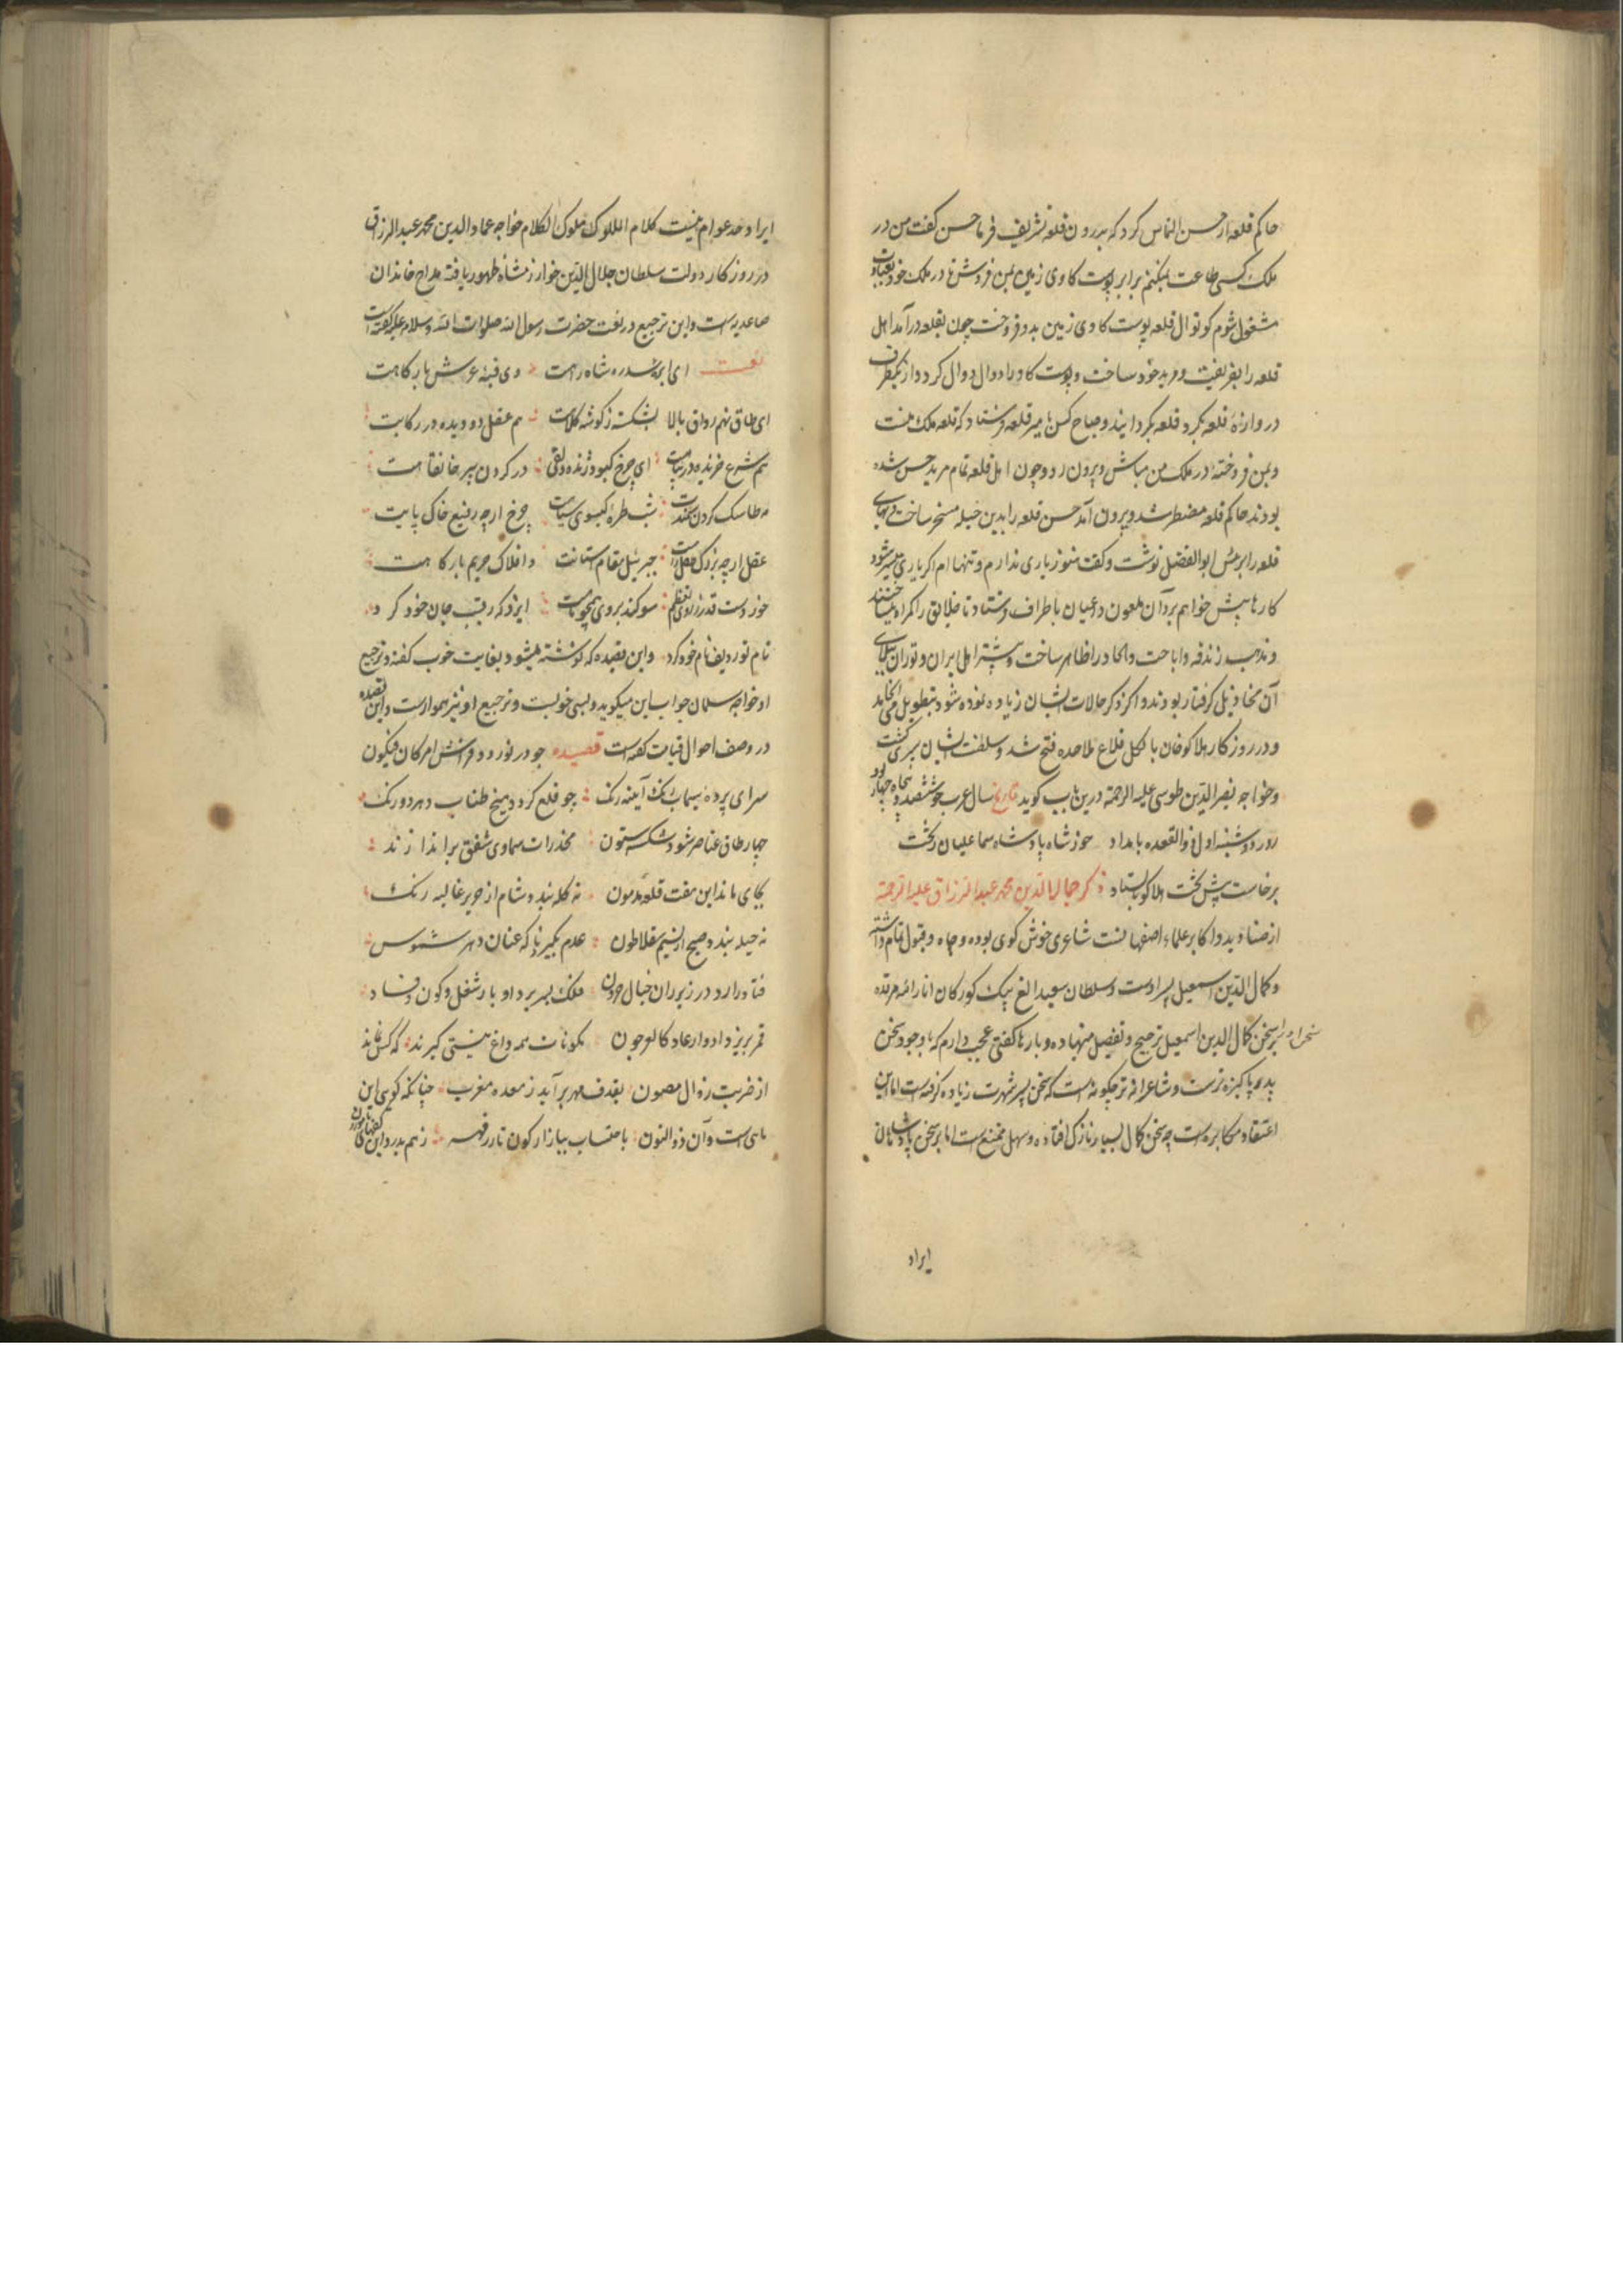 حاکم قلعه از حسن التماس کرد که بدرون قلعه تشریف فرما حسن گفت من در
ملک کسی طاعت نمیکنم برابر پوست کاوی زمین بمن فروش تا در ملک خود بعبادت
مشغول شوم کوتوال قلعه پوست کاوی زمین بدو فروخت چون بقلعه درآمد اهل
قلعه را بفریفت و مرید خود ساخت و پوست کاو را دوال دوال کرد و از یکطرف
دروازه قلعه بکرد قلعه بکردانید و صباح کس بامیر قلعه فرستاد که قلعه ملک منست
و بمن فروخته در ملک من مباش و بیرون رو و چون اهل قلعه تمام مرید حسن شده
بودند حاکم قلعه مضطر شد و بیرون آمد حسن قلعه را بدین حیله مسخر ساخت
قلعه را برئیس ابوالفضل نوشت و گفت هنوز یاری ندارم و تنها ام اکر یاری میسر شود
کارها پیش خواهم برد آن ملعون داعیان باطراف فرستاد تا خلایق را کمراه میساختند
و مذهب زندقه و اباحت و الحاد را ظاهر ساخت و بیشتر اهل ایران و توران
آن مخاذیل کرفتار بودند و اکر ذکر حالات ایشان زیاده نموده شود بتطویل می انجامد
و در روزکار هلاکو خان بالکل قلاع ملاحده فتح شد و سلطنت ایشان سپری کشت
و خواجه نصیر الدین طوسی علیه الرحمة درین باب کوید تاریخ سال عرب چو ششصد و پنجاه و چهار بود
روز دوشنبه اول ذوالقعده بامداد خورشاه پادشاه سماعیلیان ز تخت
برخاست پیش تخت هلاکو بایستاد ذکر جمال الدین محمد عبد الرزاق علیه الرحمة
از صنادید و اکابر علماء اصفهانست شاعری خوش کوی بوده و جاه و قبول تمام داشته
و کمال الدین اسمعیل پسر اوست و سلطان سعید الغ بیک کورکان انار الله مرقده
سخن او را بر سخن کمال الدین اسمعیل ترجیح و تفضیل مینهاده و بارها گفتی عجب دارم که با وجود سخن
پدر پاکیزه ترست و شاعرانه تر چکونه است که سخن پسر شهرت زیاده کرفته است اما این
اعتقاد مکابره است چه سخن کمال بسیار نازک افتاده و سهل ممتنع است اما بر سخن پادشاهان
ایراد
ایراد حد عوام نیست کلام الملوک ملوک الکلام خواجه عماد الدین محمد عبد الرزاق
در روزکار دولت سلطان جلال الدین خوارزمشاه ظهور یافته مداح خاندان
صاعدیه است و این ترجیع در نعت حضرت رسول الله صلوات الله و سلامه علیه گفته است
نعت ای از بر سدره شاه راهت وی قبه عرش بارکاهت
ای طاق نهم رواق بالا بشکسته ز کوشه کلاهت هم عقل دویده در رکابت
هم شرع خزیده در پناهت ای چرخ کبود ژنده دلقی در کردن پیر خانقاهت
مه طاسک کردن سمندت شب طره کیسوی سیاهت چرخ ارچه رفیع خاک پایت
عقل ارچه بزرک طفل راهت جبریل مقام استانت و افلاک حریم بارکاهت
خوردست قدر ز روی تعظیم سوکند بروی همچو ماهت ایزد که رقیب جان خود کرد
نام تو ردیف نام خود کرد و این قصیده که نوشته میشود بغایت خوب گفته و ترجیع
او خواجه سلمان جواب این میکوید و بسی خوبست و ترجیع او نیز هموارست و این قصیده
در وصف احوال قیامت گفته است قصیده چو در نوردد فراش امر کن فیکون
سرای پرده سیماب رنک آینه رنک چو قلع کردد میخ طناب دهر دو رنک
چهار طاق عناصر شود شکسته ستون مخدرات سماوی تتق براندازند
بجای ماند این هفت قلعه مدهون نه کله بندد شام از حریر غالیه رنک
نه حیله بندد صبح از نسیم سقلاطون عدم بکیرد ناکه عنان دهر شموس
فنا درارد در زیر ران خیال حرون فلک بسر برد ادوار شغل کون و فساد
قمر بریزد ادوار عاد کالعرجون مکونات همه داغ نیستی کیرند که کس نماند
از ضربت زوال مصون بقذف مهر برآید ز معده مغرب چنانکه کوی این
ماهی است و آن ذوالنون باحتساب ببازار کون تازد قهر ز هم بدرد این